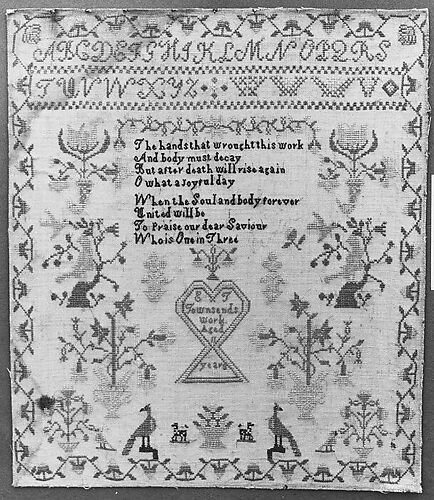 ABCDEFGHIKLMNOPQRS
TUVWXYZ
The hands that wrought this work
And body must decay
But after death will rise again
O what a Joyful day
When the Soul and body forever
United will be
To Praise our dear Saviour
Who is One in Three
E T
Townsends
Work
Aged
11
years